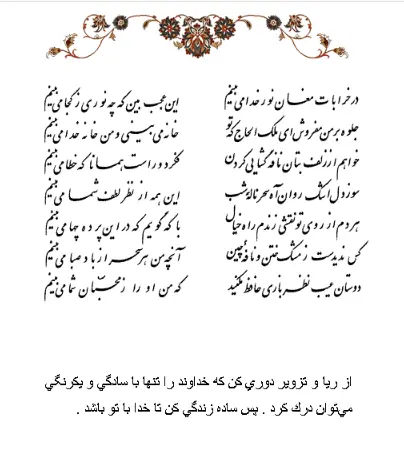 در خرابات مغان نور خدا می بینم این عجب بین که چه نوری ز کجا می بینم
جلوه بر من مفروش ای ملک الحاج که تو خانه می بینی و من خانه خدا می بینم
خواهم از زلف بتان نافه گشایی کردن فکر دور است همانا که خطا می بینم
سوز دل اشک روان آه سحر ناله شب این همه از نظر لطف شما می بینم
هر دم از روی تو نقشی زندم راه خیال با که گویم که در این پرده چها می بینم
کس ندیدست ز مشک ختن و نافه چین آنچه من هر سحر از باد صبا می بینم
دوستان عیب نظر بازی حافظ مکنید که من او را ز محبان شما می بینم
از ريا و تزوير دوري كن كه خداوند را تنها با سادگي و يكرنگي
مي‌توان درك كرد . پس ساده زندگي كن تا خدا با تو باشد .